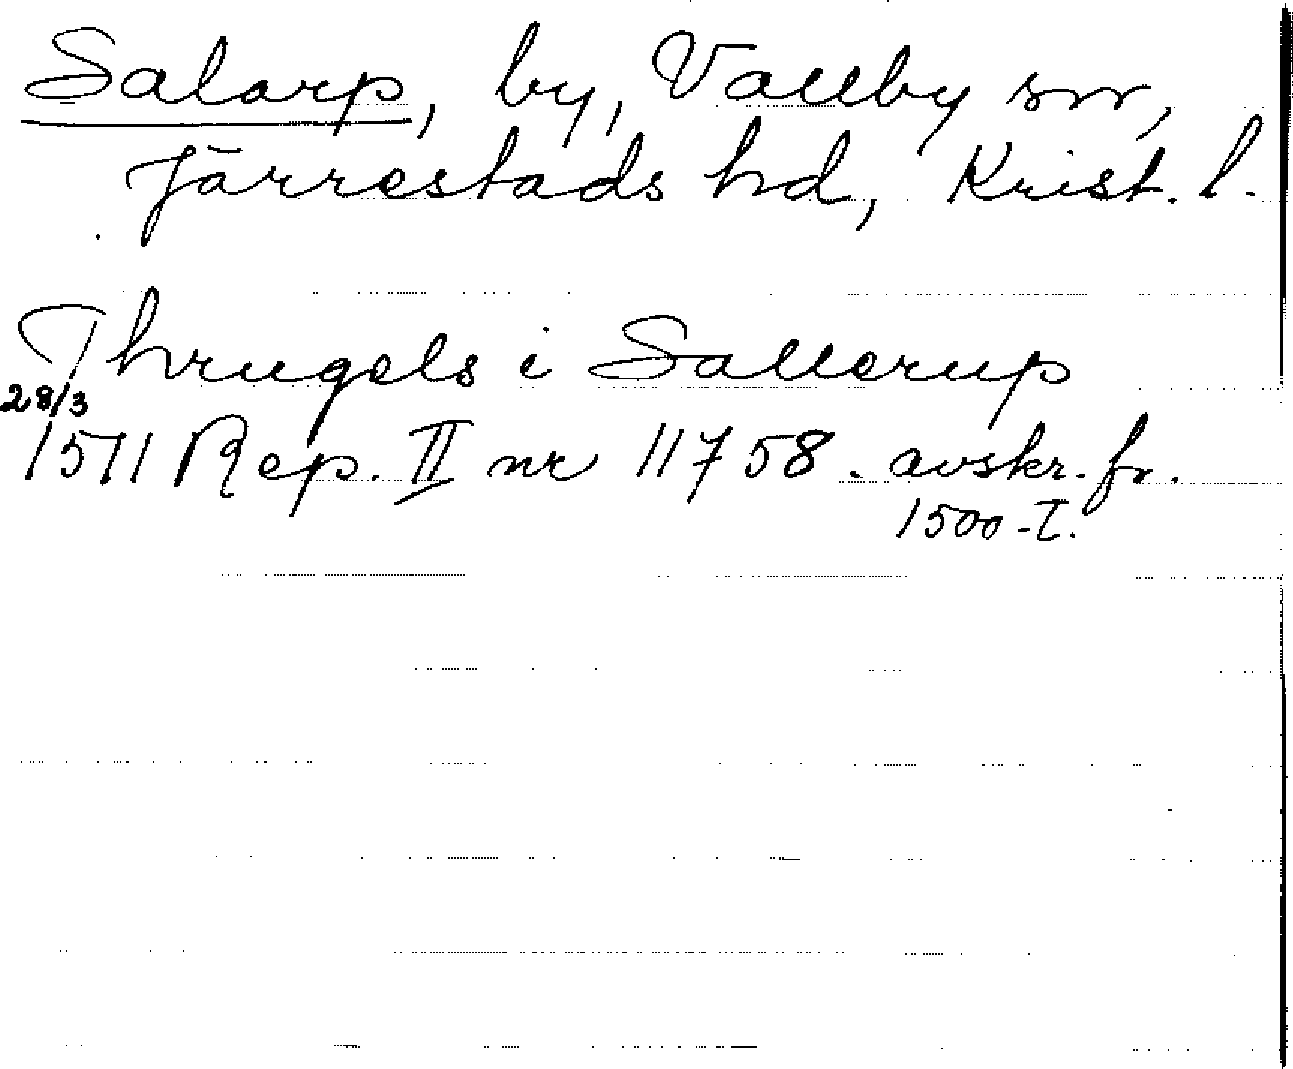 Salarp, by, Vallby sn,
Järrestads hd, Krist. l.
Thrugels i Sallerup
28/3
1511 Rep. II nr 11758. avskr. fr.
1500-t.